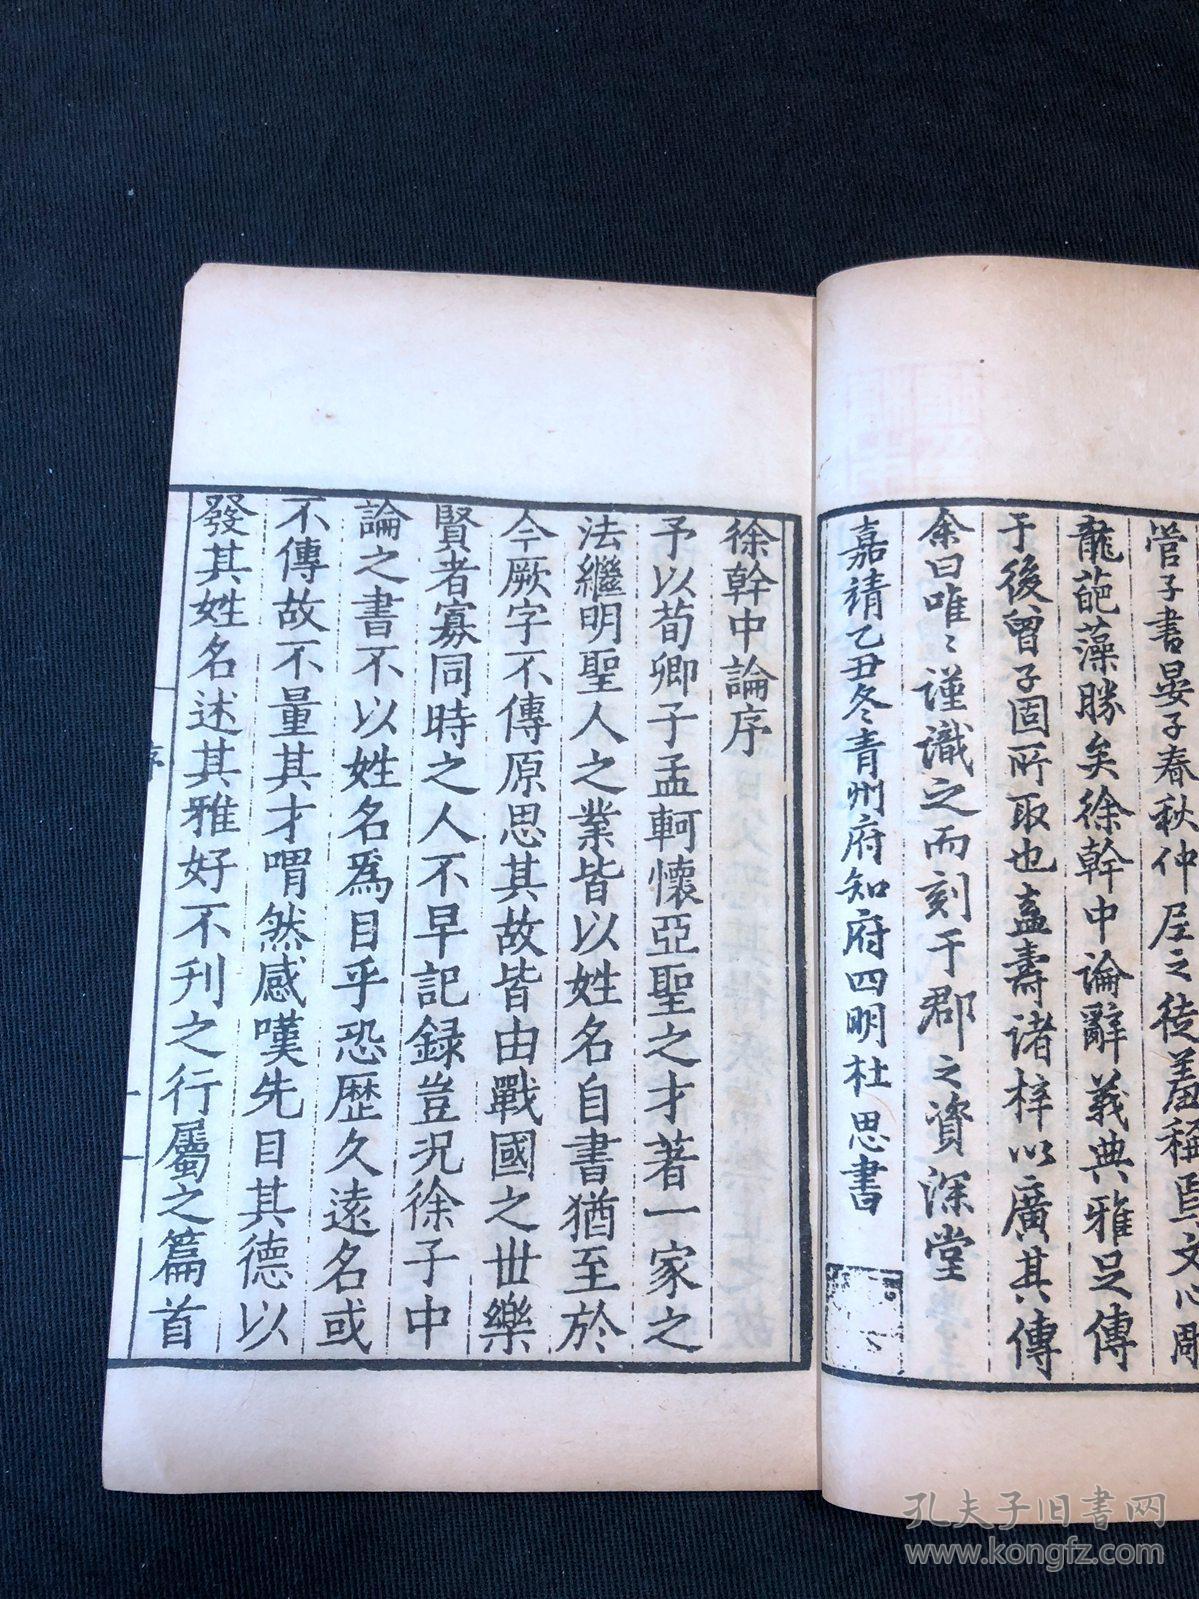 管子書晏子春秋仲尼之徒羞稱且文心雕
龍葩藻勝矣徐幹中論辭義典雅足傳
于後曾子固所取也盍壽諸梓以廣其傳
余曰唯〻謹識之而刻于郡之資深堂
嘉靖乙丑冬青州府知府四明杜思書
徐幹中論序
予以荀卿子孟軻懷亞聖之才著一家之
法繼明聖人之業皆以姓名自書猶至於
今厥字不傳原思其故皆由戰國之世樂
賢者寡同時之人不早記録豈況徐子中
論之書不以姓名爲目乎恐歴久遠名或
不傳故不量其才喟然感嘆先目其德以
發其姓名述其雅好不刋之行屬之篇首
序
一
孔夫子旧书网
www.kongfz.com